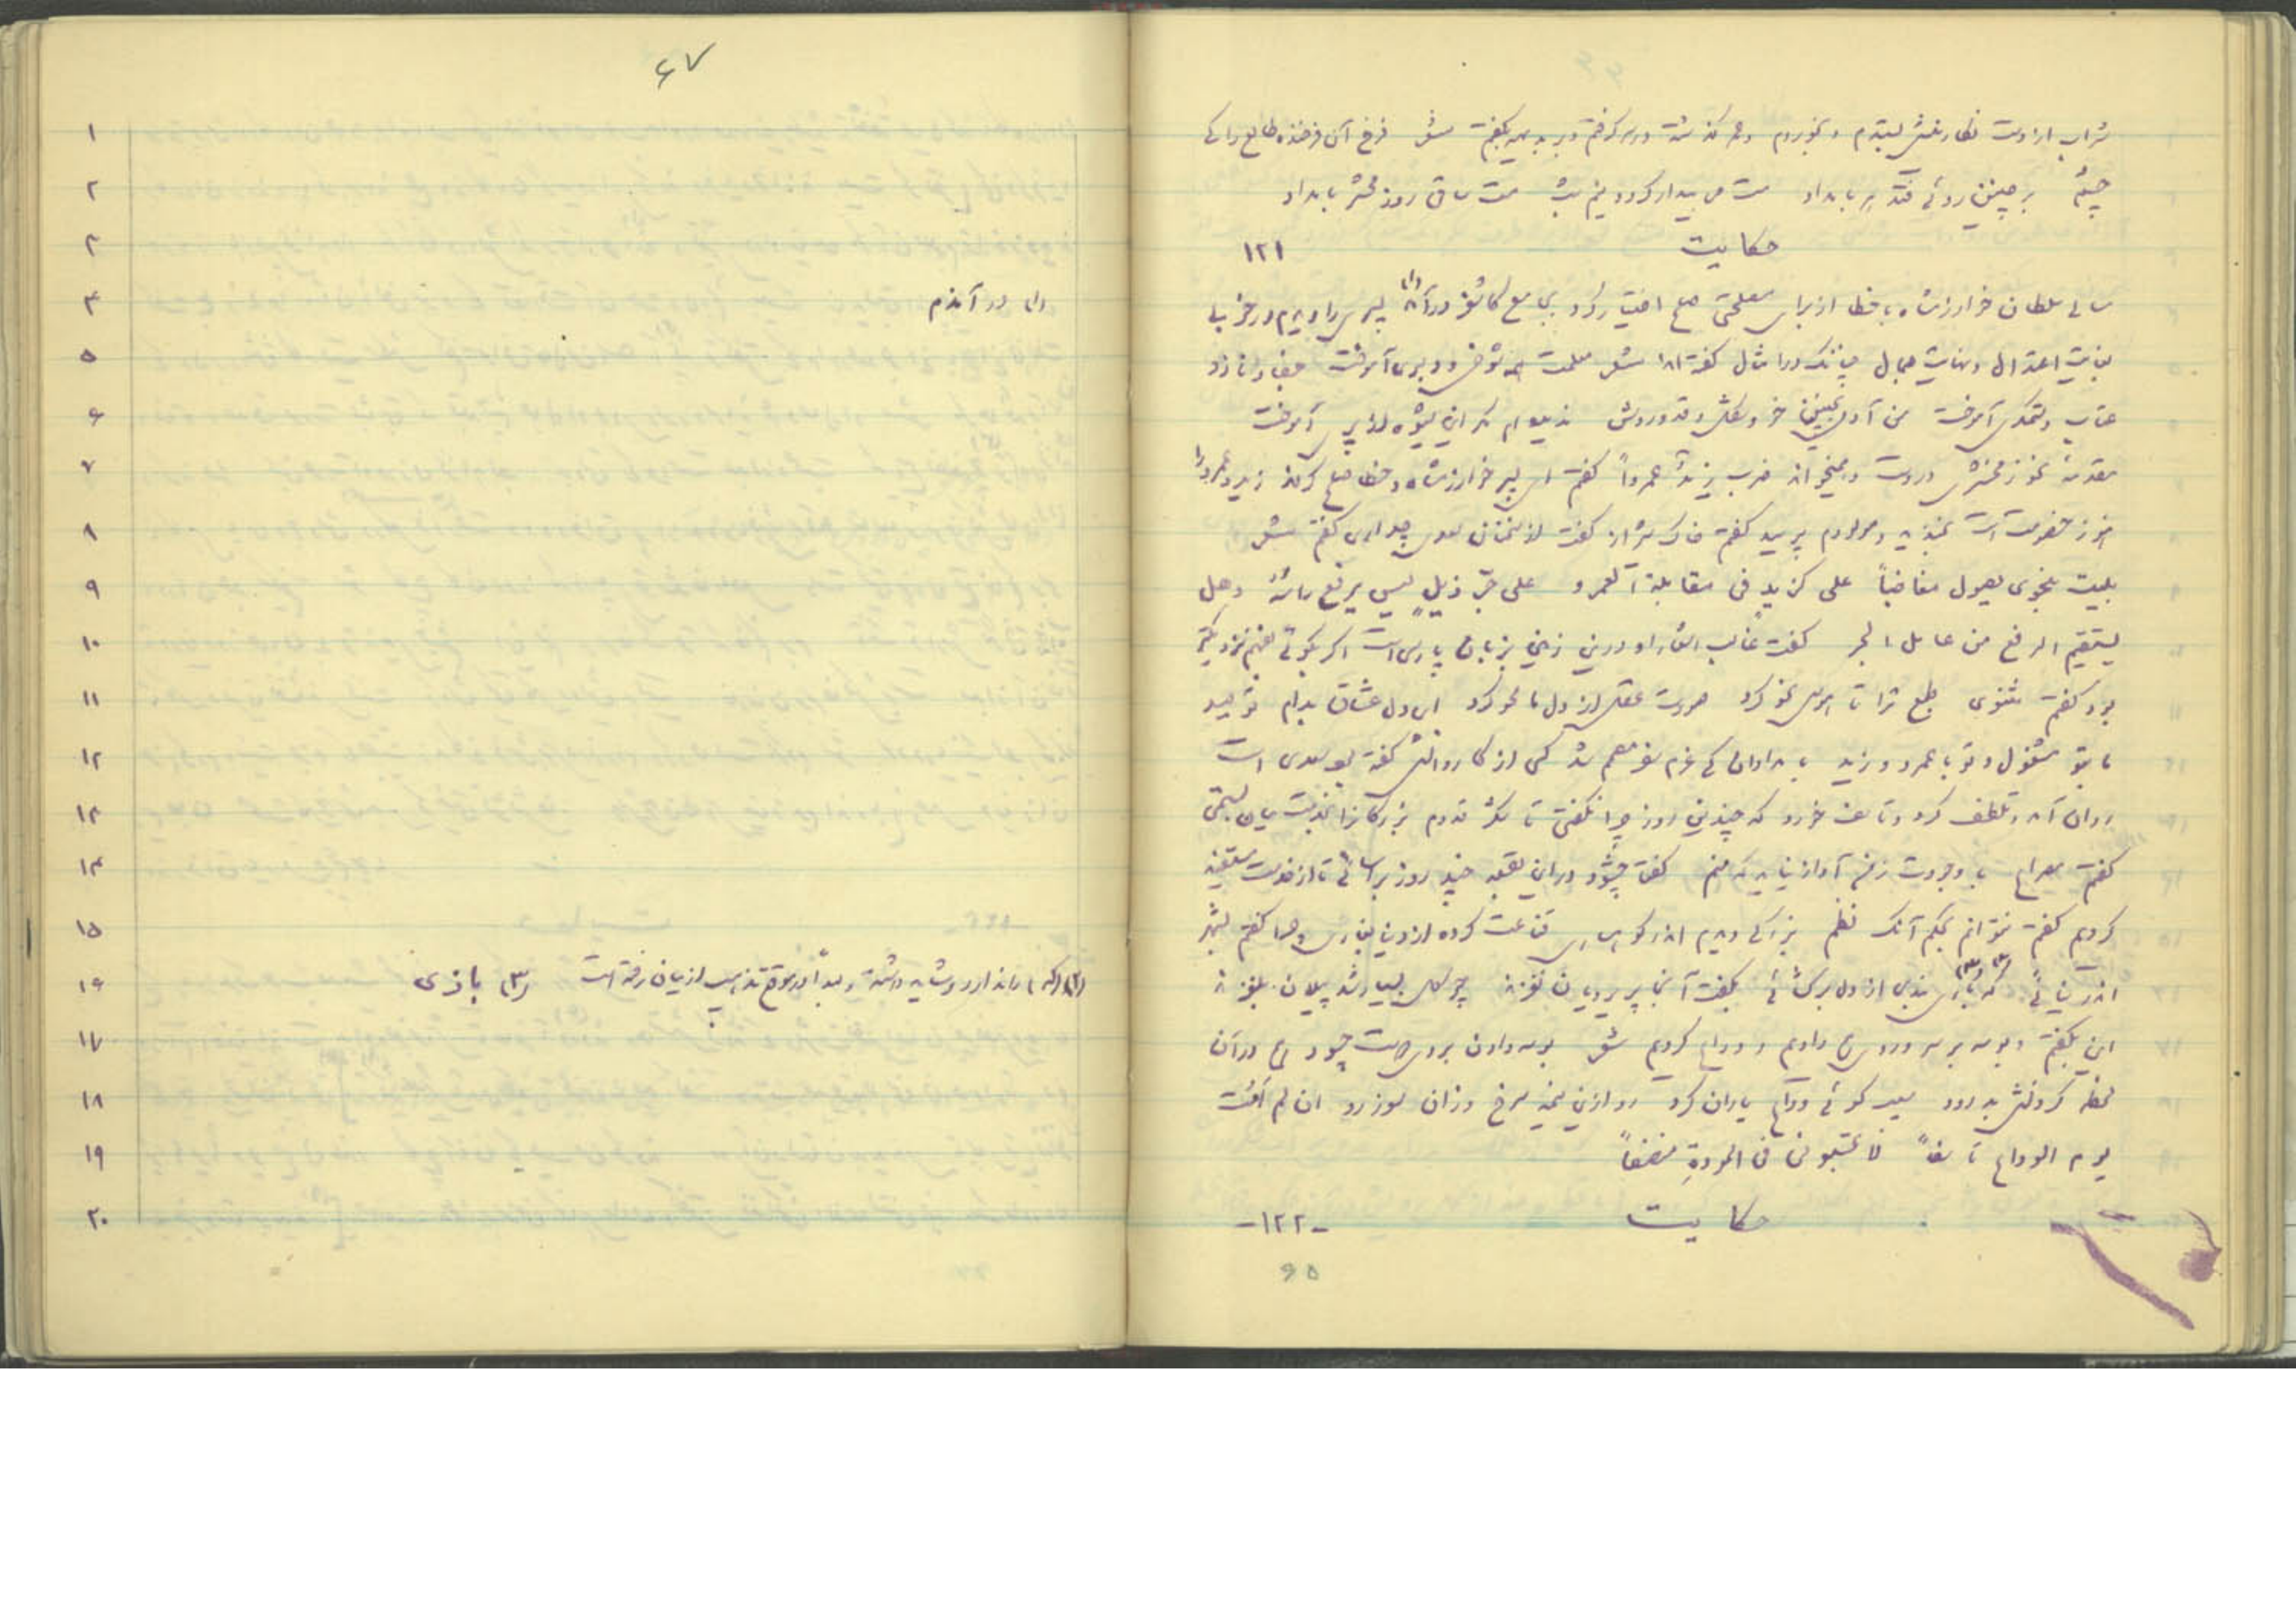 شراب از دست نگارینش بستدم و بخوردم و عمر گذشته در سر گرفتم و بدیهه بگفتم شعر فرخ آن فرخنده طالع را که
چشم بر چنین روئی فتد هر بامداد مست می بیدار گردد نیم شب مست ساقی روز محشر بامداد
حکایت ۱۲۱
سالی سلطان خوارزمشاه با خطا از برای مصلحتی صلح اختیار کرد بجامع کاشغر درآمد (۱) پسری را دیدم در خوبی
بغایت اعتدال و نهایت جمال چنانکه در امثال گفته‌اند شعر معلمت همه شوخی و دلبری آموخت جفا و ناز و
عتاب و ستمگری آموخت من آدمی بچنین خو و شکل و قد و روش ندیده‌ام مگر این شیوه از پری آموخت
مقدمه نحو زمخشری در دست و همیخواند ضرب زیدٌ عمرواً گفتم ای پسر خوارزمشاه و خطا صلح کردند زید و عمرو را
هنوز خصومت است بخندید و مولدم پرسید گفتم خاک شیراز گفت از سخنان سعدی چه داری گفتم شعر
بلیت بنحوی یصول مغاضباً علی کزید فی مقابلة العمرو علی جر ذیلٍ لیس یرفع راسه و هل
یستقیم الرفع من عامل الجر گفت غالب اشعار او درین زمین بزبان پارسی است اگر بگوئی بفهم نزدیکتر
بود گفتم مثنوی طبع ترا تا هوس نحو کرد صورت عقل از دل ما محو کرد ای دل عشاق بدام تو صید
ما بتو مشغول و تو با عمرو و زید بامدادان که عزم سفر مصمم شد کسی از کاروانش گفته بود سعدی است
دوان آمد و تلطف کرد و تاسف خورد که چندین روز چرا نگفتی تا شکر قدوم بزرگانرا بخدمت میان بستمی
گفتم مصراع با وجودت ز من آواز نیاید که منم گفت چشود در این بقعه چند روز برآسائی تا از خدمت مستفید
گردیم گفتم نتوانم بحکم آنک نظم بزرگی دیدم اندر کوهساری قناعت کرده از دنیا بغاری چرا گفتم بشهر
اندر نیائی که (۲) باری (۳) بندی از دل برگشائی بگفت آنجا پریرویان نغزند چو گل بسیار شد پیلان بلغزند
این بگفتم و بوسه بر سر و روی هم دادیم و وداع کردیم شعر بوسه دادن بروی دوست چسود هم در آن
لحظه کردنش بدرود سیب گوئی وداع یاران کرد روی ازین نیمه سرخ و زان سو زرد ان لم امُت
یوم الوداع تاسفاً لا تحسبونی فی المودةِ منصفاً
حکایت -۱۲۲-
۶۵
۶۷
۱
۲
۳
۴ (۱) در آمدم
۵
۶
۷
۸
۹
۱۰
۱۱
۱۲
۱۳
۱۴
۱۵
۱۶ (۲) (که) را ندارد و شاید داشته و بعداً در موقع تذهیب از میان رفته است (۳) بازی
۱۷
۱۸
۱۹
۲۰